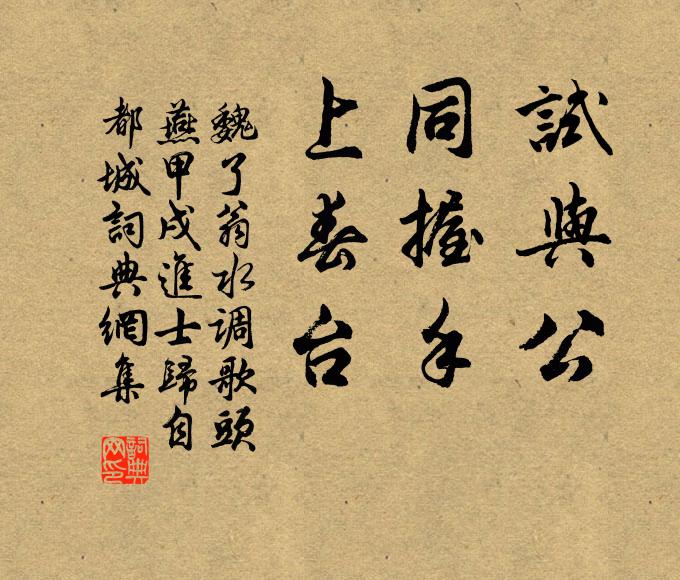 試與公
同握手
上春台
魏了翁水调歌頭
燕甲戌進士歸自
都城詞典網集
詞典网印